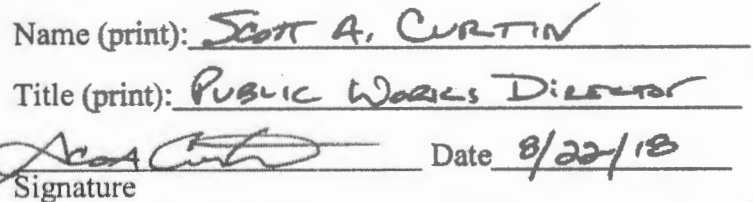 Name (print): Scott A. Curtin
Title (print): Public Works Director
Scott Curtin Date 8/22/18
Signature